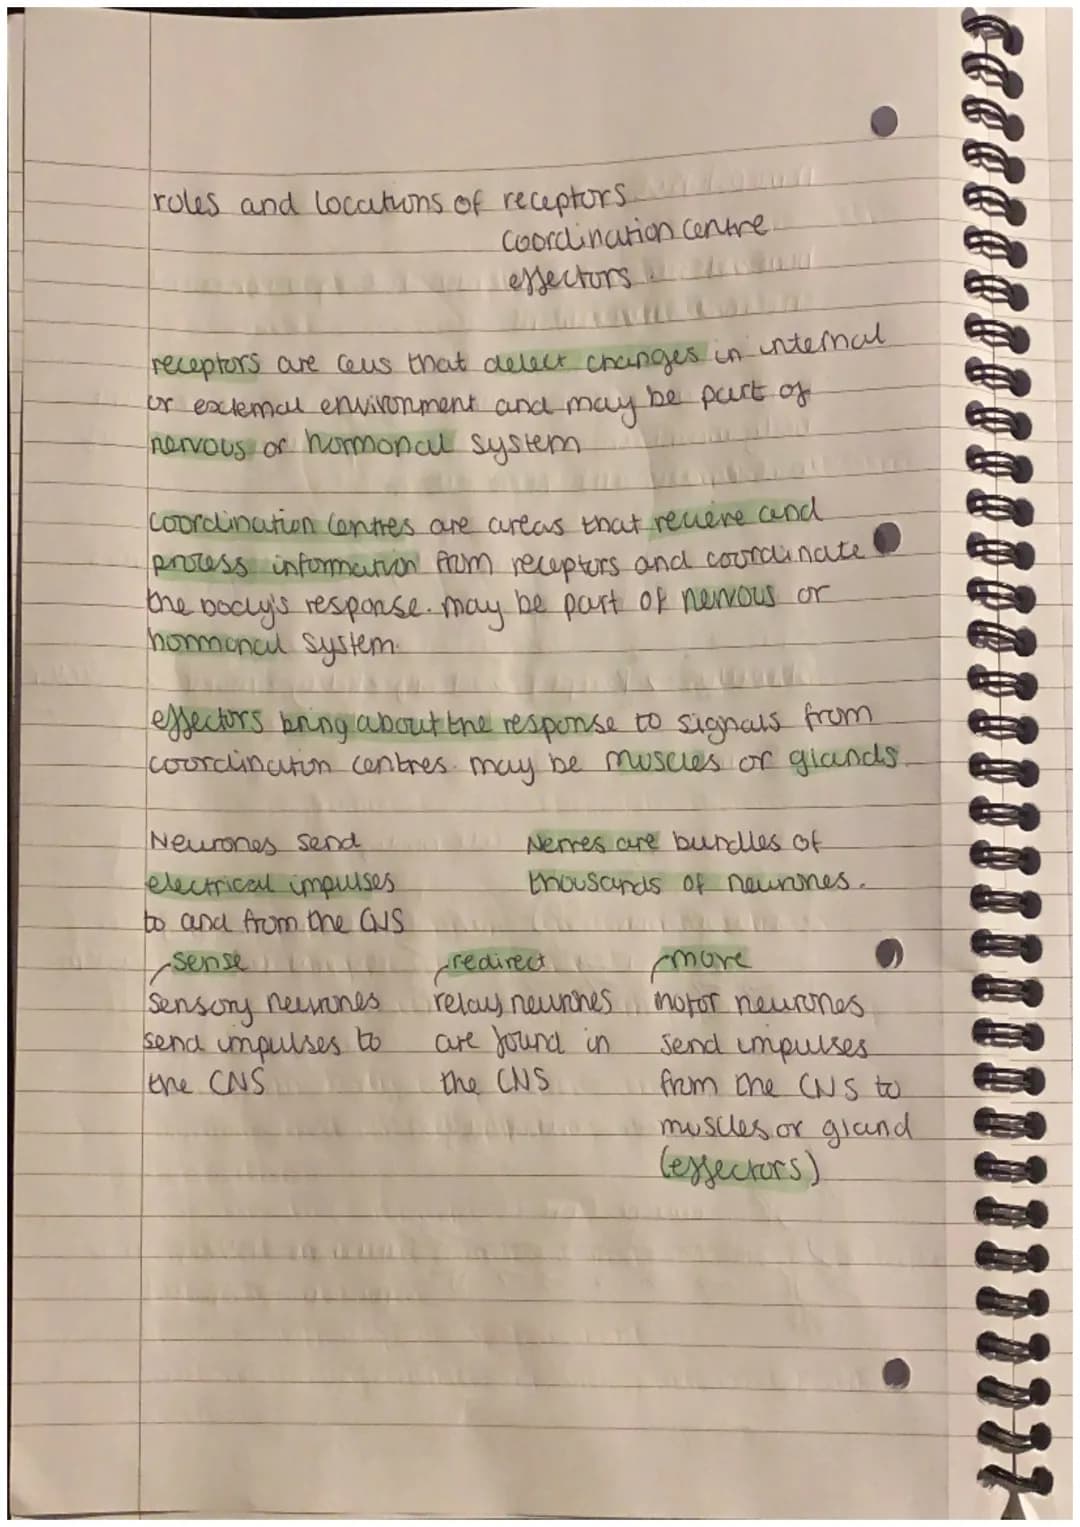 roles and locations of receptors
coordination centre
effectors
receptors are cells that detect changes in internal
or external environment and may be part of
nervous or hormonal system
coordination centres are areas that recieve and
process information from receptors and coordinate
the body's response. may be part of nervous or
hormonal system.
effectors bring about the response to signals from
coordination centres. may be muscles or glands.
Neurones send
electrical impulses
to and from the CNS
Nerves are bundles of
thousands of neurones.
sense
redirect
move
sensory neurones
send impulses to
the CNS
relay neurones
are found in
the CNS
motor neurones
send impulses
from the CNS to
muscles or gland
(effectors)